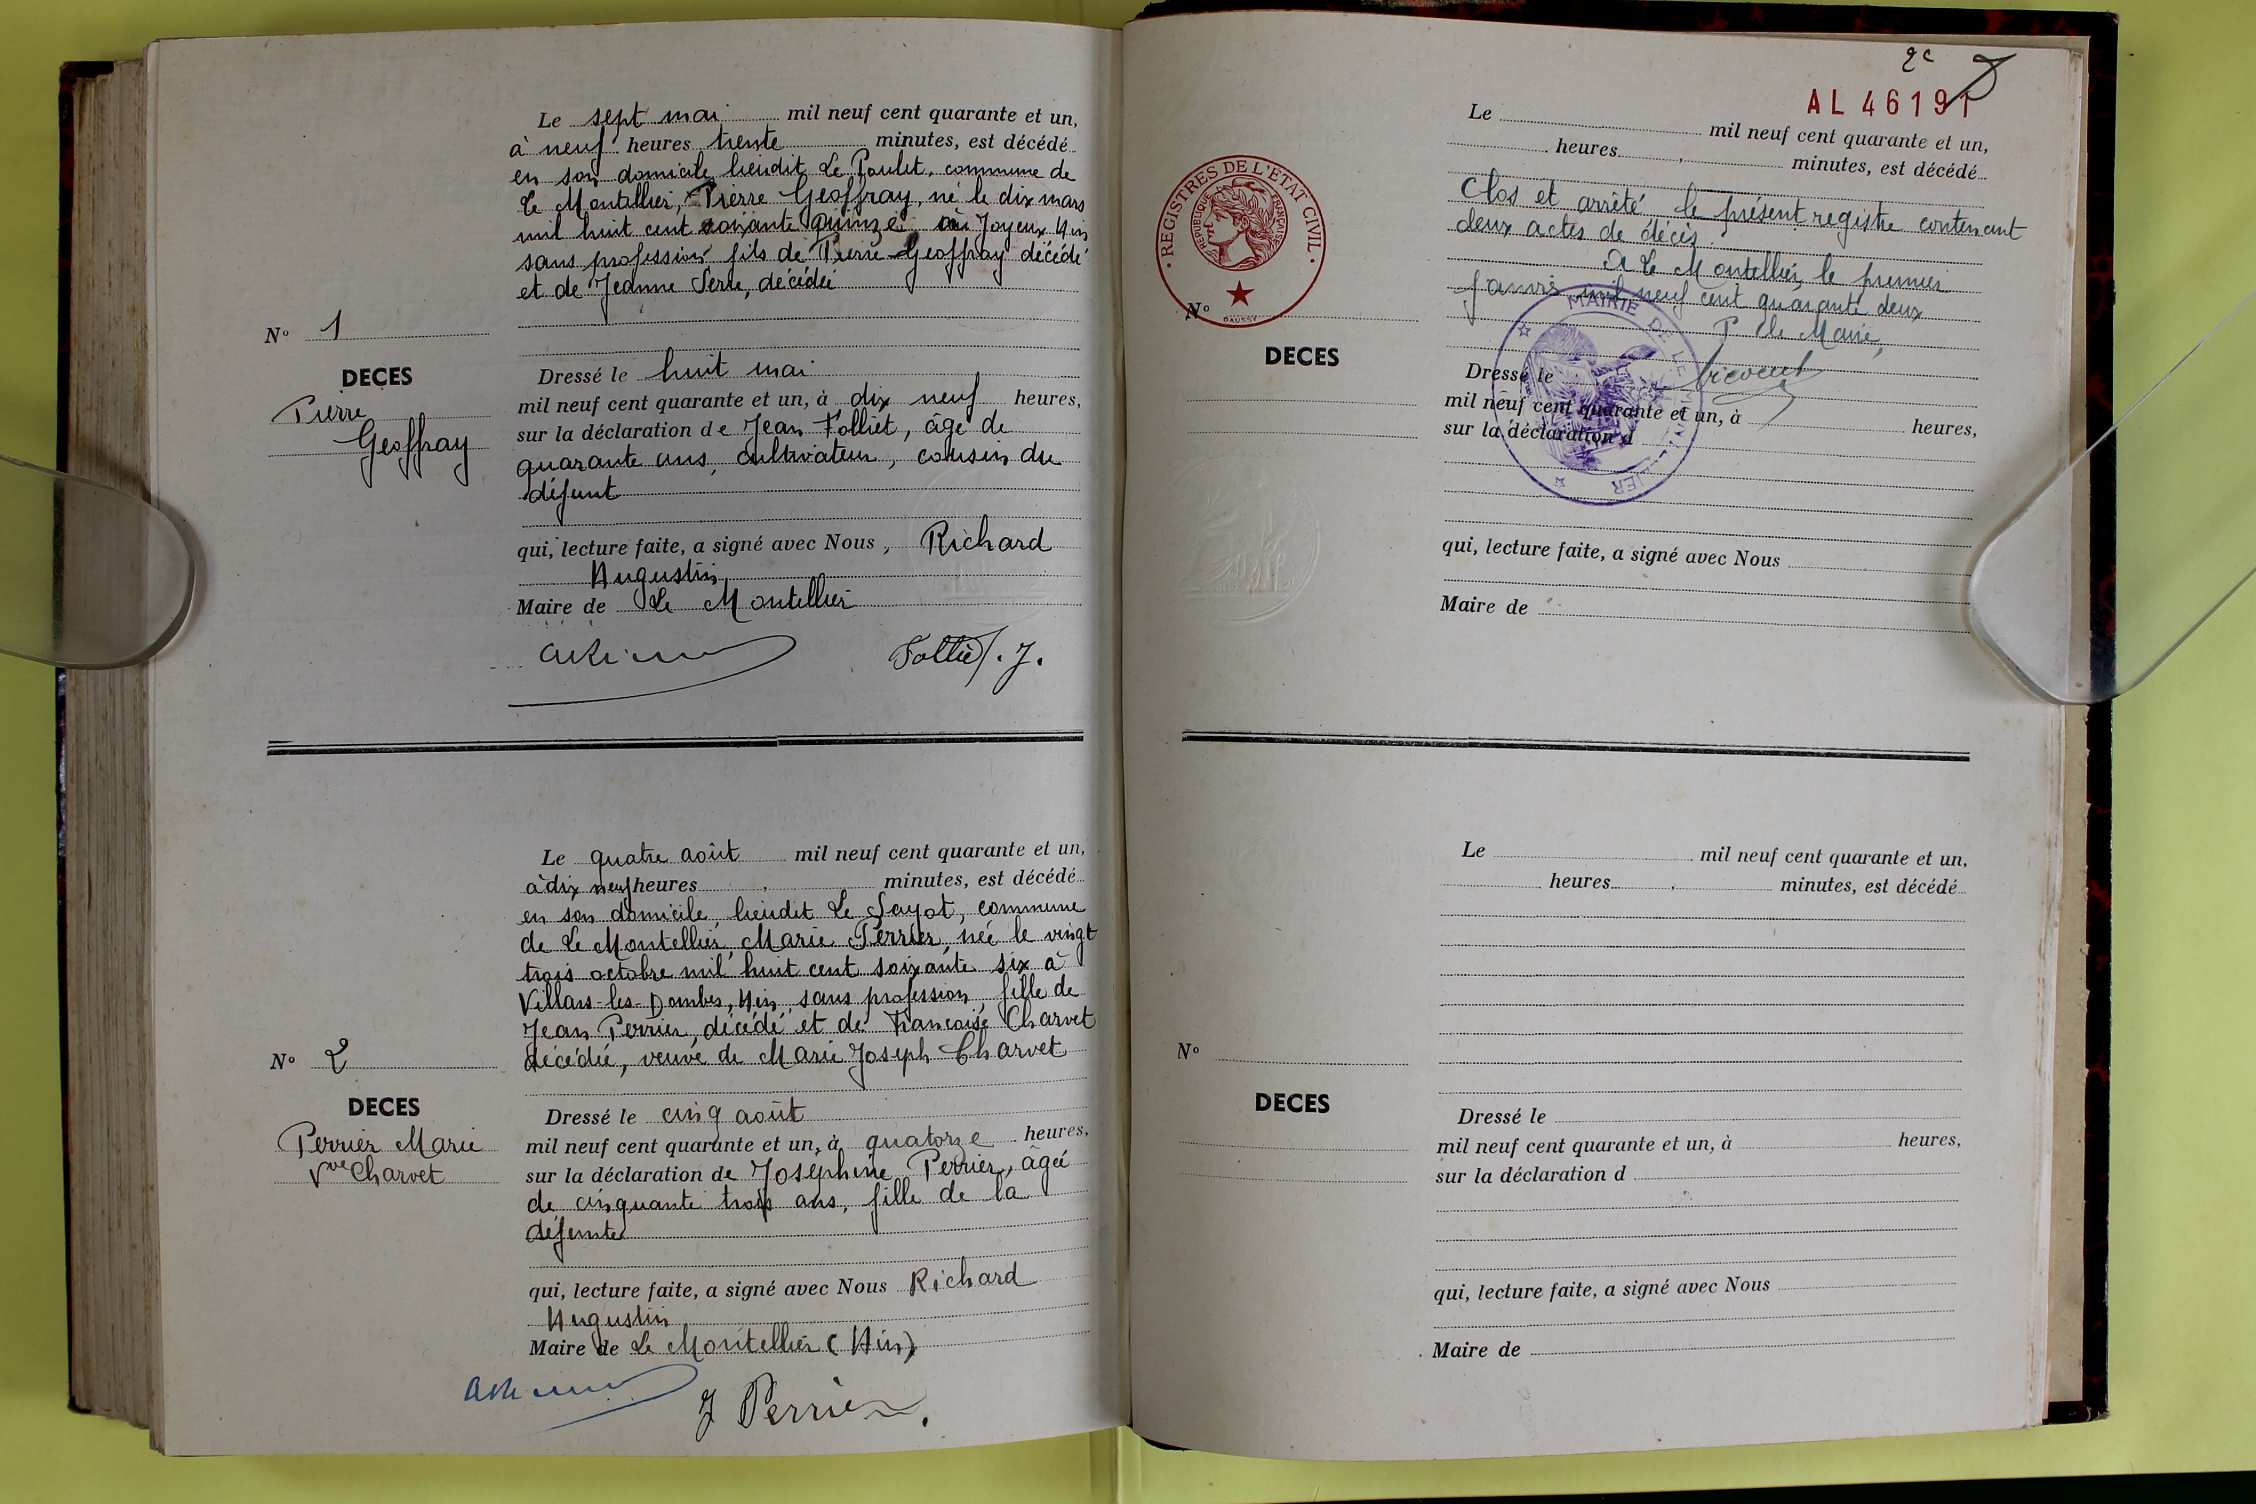 Le sept mai mil neuf cent quarante et un,
à neuf heures trente minutes, est décédé
en son domicile lieudit Le Poulet, commune de
Le Montellier, Pierre Geoffray, né le dix mars
mil huit cent soixante quinze à Joyeux Ain
sans profession fils de Pierre Geoffray décédé
et de Jeanne Serre, décédée
N° 1
DECES
Pierre
Geoffray
Dressé le huit mai
mil neuf cent quarante et un, à dix neuf heures,
sur la déclaration de Jean Folliet, âgé de
quarante ans, cultivateur, cousin du
défunt
qui, lecture faite, a signé avec Nous, Richard
Augustin
Maire de Le Montellier
Folliet. J.
Le quatre août mil neuf cent quarante et un,
à dix neuf heures minutes, est décédé
en son domicile lieudit Le Sayot, commune
de Le Montellier Marie Perrier, née le vingt
trois octobre mil huit cent soixante six à
Villars-les-Dombes, Ain, sans profession, fille de
Jean Perrier, décédé et de Françoise Charvet
décédée, veuve de Marie Joseph Charvet
N° 2
DECES
Perrier Marie
Vve Charvet
Dressé le cinq août
mil neuf cent quarante et un, à quatorze heures,
sur la déclaration de Joséphine Perrier, âgée
de cinquante trois ans, fille de la
défunte
qui, lecture faite, a signé avec Nous Richard
Augustin
Maire de Le Montellier (Ain)
J Perrier.
2e
AL 46191
Le mil neuf cent quarante et un,
heures minutes, est décédé
REGISTRES DE L'ETAT CIVIL
REPUBLIQUE FRANÇAISE
DAUSSY
Clos et arrêté le présent registre contenant
deux actes de décès.
A Le Montellier, le premier
Janvier mil neuf cent quarante deux
P le Maire,
N°
DECES
MAIRIE DE LE MONTELLIER
Dressé le
mil neuf cent quarante et un, à heures,
sur la déclaration d
qui, lecture faite, a signé avec Nous
Maire de
Le mil neuf cent quarante et un,
heures minutes, est décédé
N°
DECES
Dressé le
mil neuf cent quarante et un, à heures,
sur la déclaration d
qui, lecture faite, a signé avec Nous
Maire de